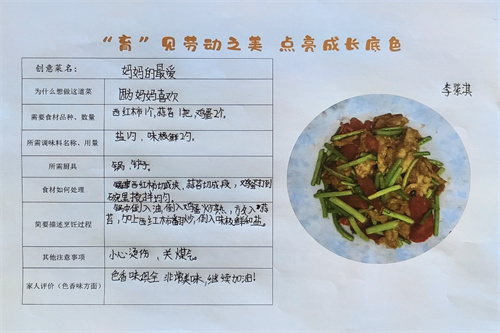 “育”见劳动之美 点亮成长底色
李莱淇
创意菜名： 妈妈的最爱
为什么想做这道菜 因为妈妈喜欢
需要食材品种、数量 西红柿1个,蒜苔1把,鸡蛋2个。
所需调味料名称、用量 盐1勺，味极鲜2勺。
所需厨具 锅、铲子。
食材如何处理 西红柿切成块、蒜苔切成段，鸡蛋打到
碗里搅拌均匀。
简要描述烹饪过程 锅中倒入油,倒入鸡蛋炒熟，放入蒜
苔，加上西红柿翻炒,倒入味极鲜和盐。
其他注意事项 小心烫伤，关煤气。
家人评价（色香味方面） 色香味俱全 非常美味,继续加油!